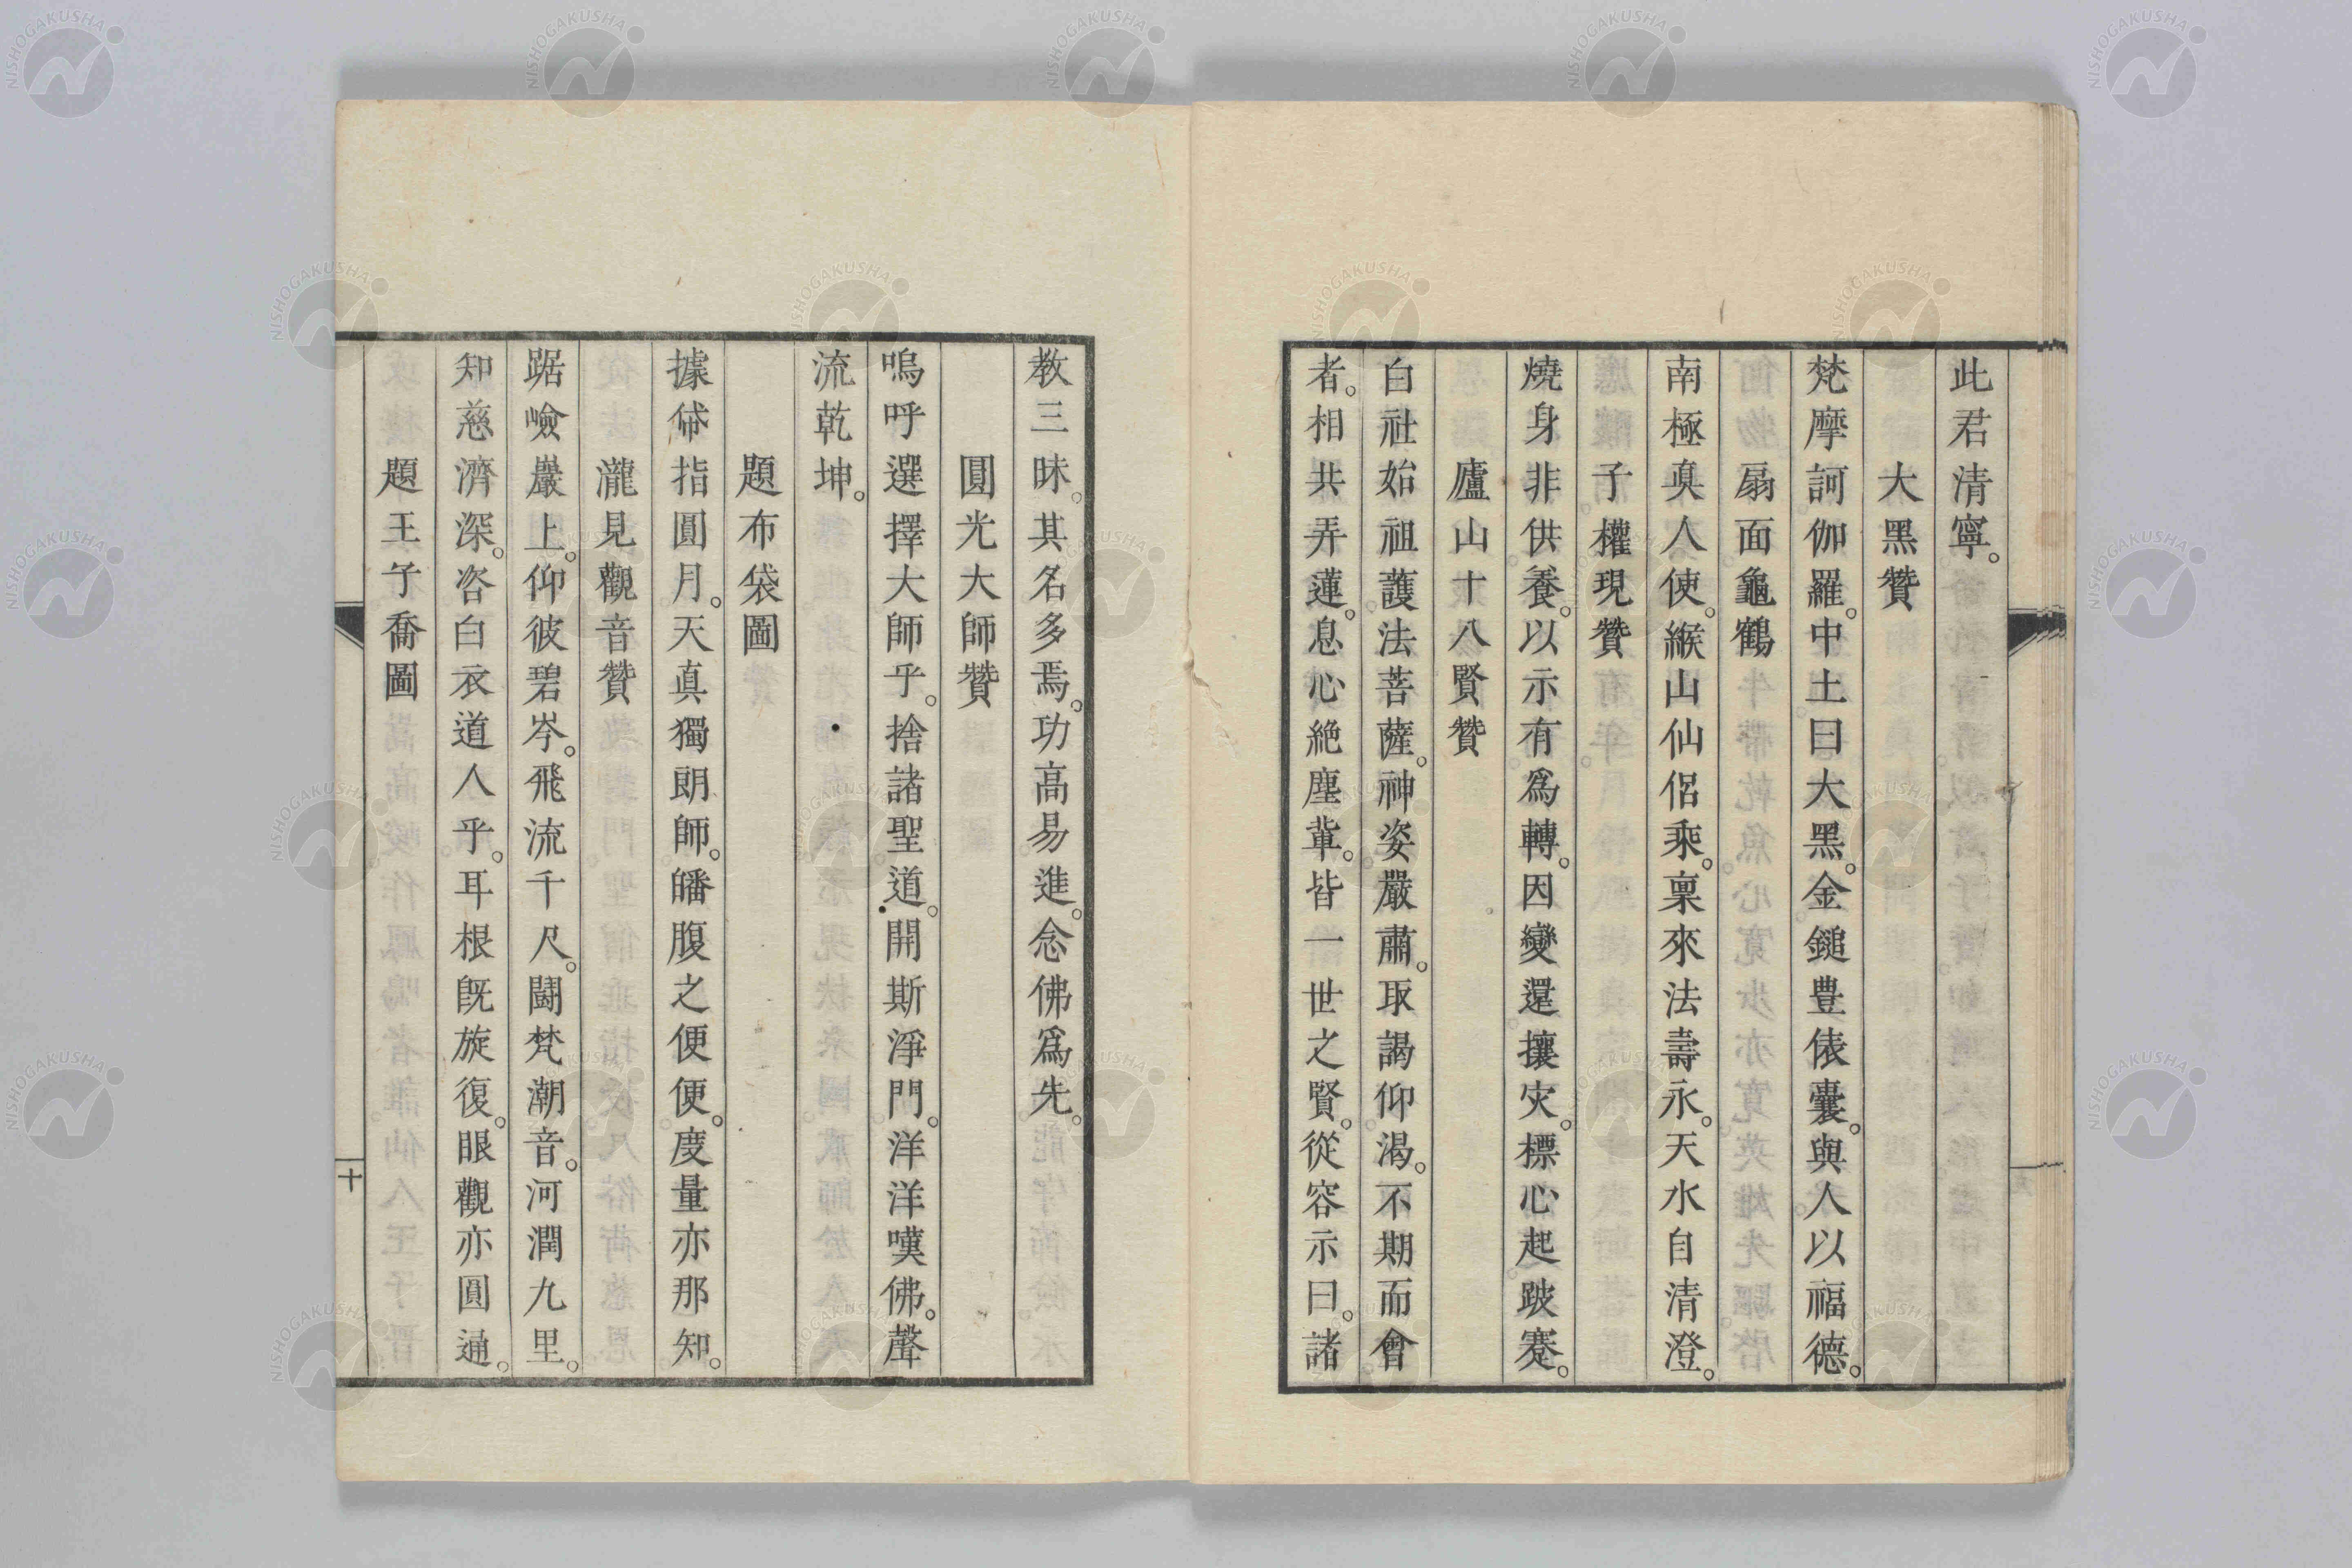 此君清寧。
大黑贊
梵摩訶伽羅。中土曰大黑。金鎚豊俵囊。與人以福德。
扇面龜鶴
南極眞人使。緱山仙侶乘。稟來法壽永。天水自清澄。
子權現贊
燒身非供養。以示有爲轉。因變還攘灾。標心起跛蹇。
廬山十八賢贊
白社始祖護法菩薩。神姿嚴肅。取謁仰渴。不期而會
者。相共弄蓮。息心絶塵軰。皆一世之賢。從容示曰。諸
教三昧。其名多焉。功高易進。念佛爲先。
圓光大師贊
嗚呼選擇大師乎。捨諸聖道。開斯淨門。洋洋嘆佛。聲
流乾坤。
題布袋圖
據帒指圓月。天真獨朗師。皤腹之便便。度量亦那知。
瀧見觀音贊
踞嶮巖上。仰彼碧岑。飛流千尺。鬪梵潮音。河潤九里。
知慈濟深。咨白衣道人乎。耳根既旋復。眼觀亦圓通。
題王子喬圖
十
NISHOGAKUSHA